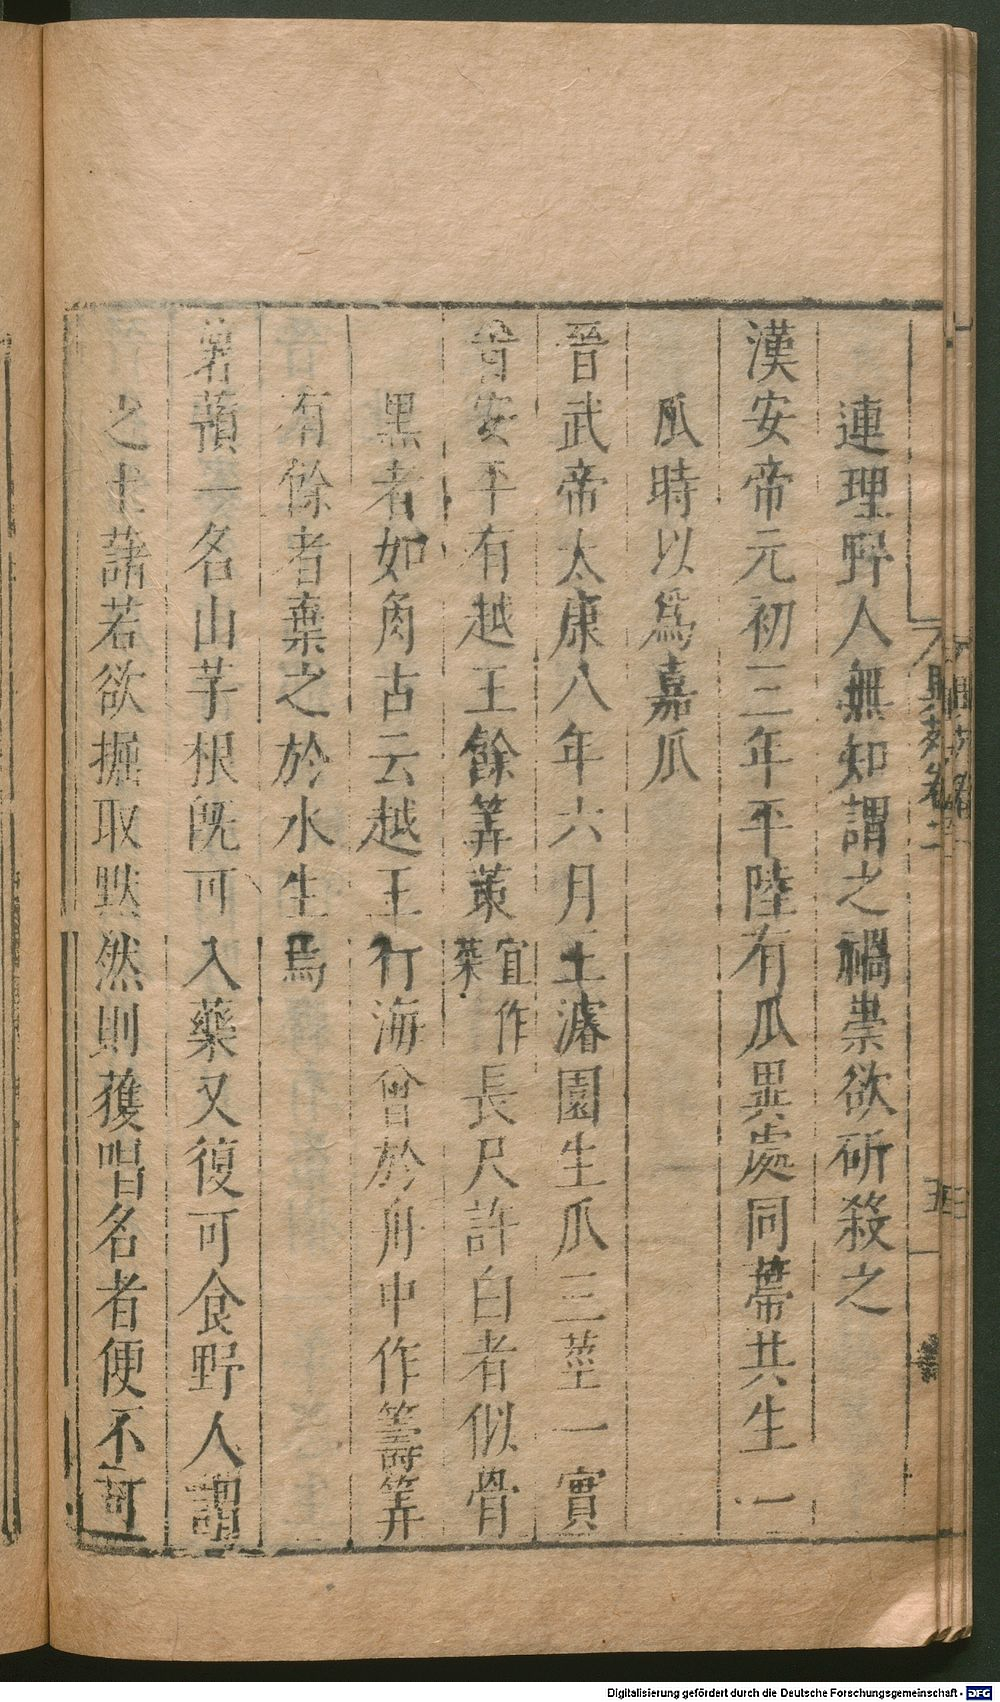 連理野人無知謂之禍祟欲斫殺之
漢安帝元初三年平陸有瓜異處同蔕共生一
瓜時以爲嘉瓜
晉武帝太康八年六月王濬園生瓜三莖一實
晉安平有越王餘筭䇿宜作葉長尺許白者似骨
黑者如角古云越王行海曾於舟中作籌筭
有餘者棄之於水生焉
薯蕷一名山芋根旣可入藥又復可食野人謂
之土藷若欲掘取默然則獲唱名者便不可
異苑卷二
五
Digitalisierung gefördert durch die Deutsche Forschungsgemeinschaft - DFG